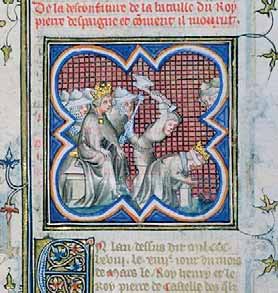 De la desconfiture de la bataille du Roy
pierre despaigne et coment il mourut.
En lan dessus dit mil ccc
lxviii. le xiiii. iour du mois
de mars le Roy henry et le
Roy pierre de Castelle